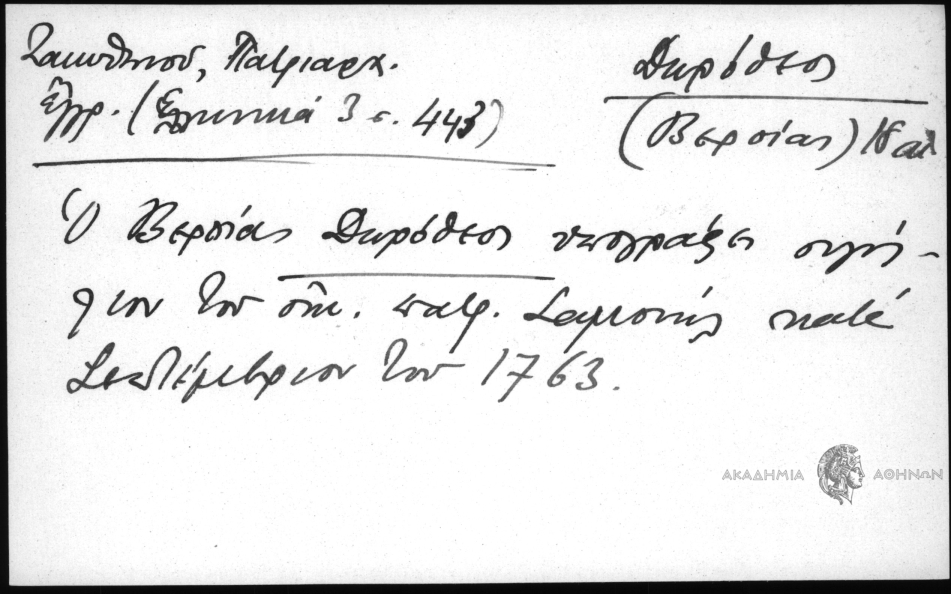 Ζακυθηνοῦ, Πατριαρχ.
ἔγγρ. (Ἑλληνικά 3 σ. 443)
Δωρόθεος
(Βεροίας) 18 αἰ.
Ὁ Βεροίας Δωρόθεος ὑπογράφει σιγίλ-
λιον τοῦ οἰκ. πατρ. Σαμουήλ κατά
Σεπτέμβριον τοῦ 1763.
ΑΚΑΔΗΜΙΑ ΑΘΗΝΩΝ